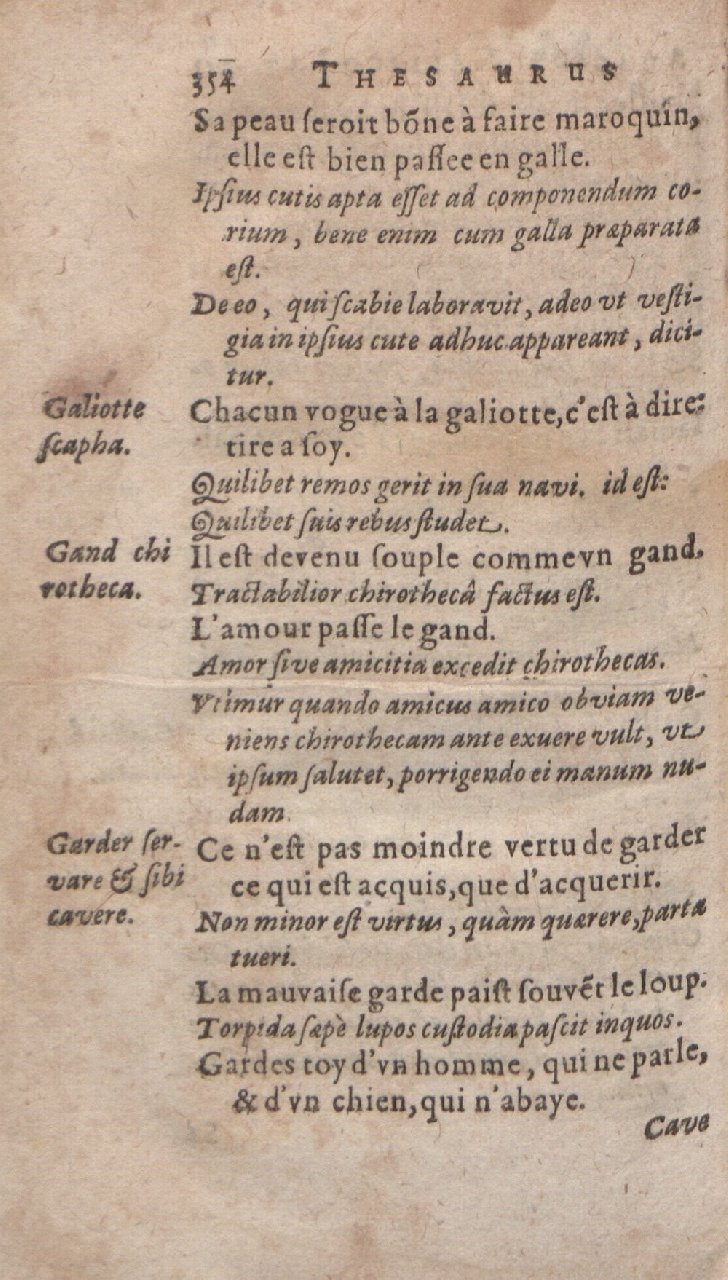 354 THESAURUS
Sa peau ſeroit bõne à faire maroquin,
elle eſt bien paſſee en galle.
Ipſius cutis apta eſſet ad componendum co-
rium, bene enim cum galla præparata
eſt.
De eo, qui ſcabie laboravit, adeo vt veſti-
gia in ipſius cute adhuc appareant, dici-
tur.
Galiotte
ſcapha.
Chacun vogue à la galiotte, c'eſt à dire:
tire a ſoy.
Quilibet remos gerit in ſua navi. id eſt:
Quilibet ſuis rebus ſtudet.
Gand chi
rotheca.
Il eſt devenu ſouple comme vn gand.
Tractabilior chirothecâ factus eſt.
L'amour paſſe le gand.
Amor ſive amicitia excedit chirothecas.
Vtimur quando amicus amico obviam ve-
niens chirothecam ante exuere vult, vt
ipſum ſalutet, porrigendo ei manum nu-
dam.
Garder ſer-
vare & ſibi
cavere.
Ce n'eſt pas moindre vertu de garder
ce qui eſt acquis, que d'acquerir.
Non minor eſt virtus, quàm quærere, parta
tueri.
La mauvaiſe garde paiſt ſouvẽt le loup.
Torpida ſæpè lupos cuſtodia paſcit inquos.
Gardes toy d'vn homme, qui ne parle,
& d'vn chien, qui n'abaye.
Cave